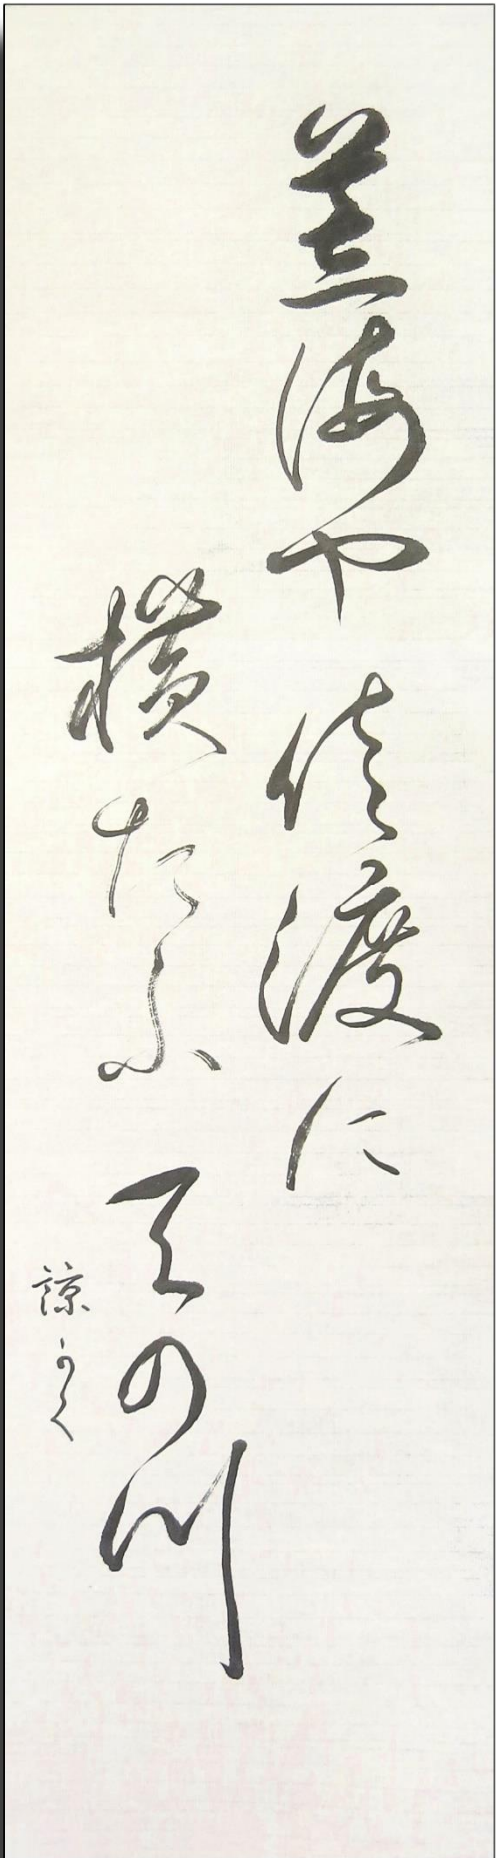 荒海や 佐渡に
横たふ 天の川
諒かく